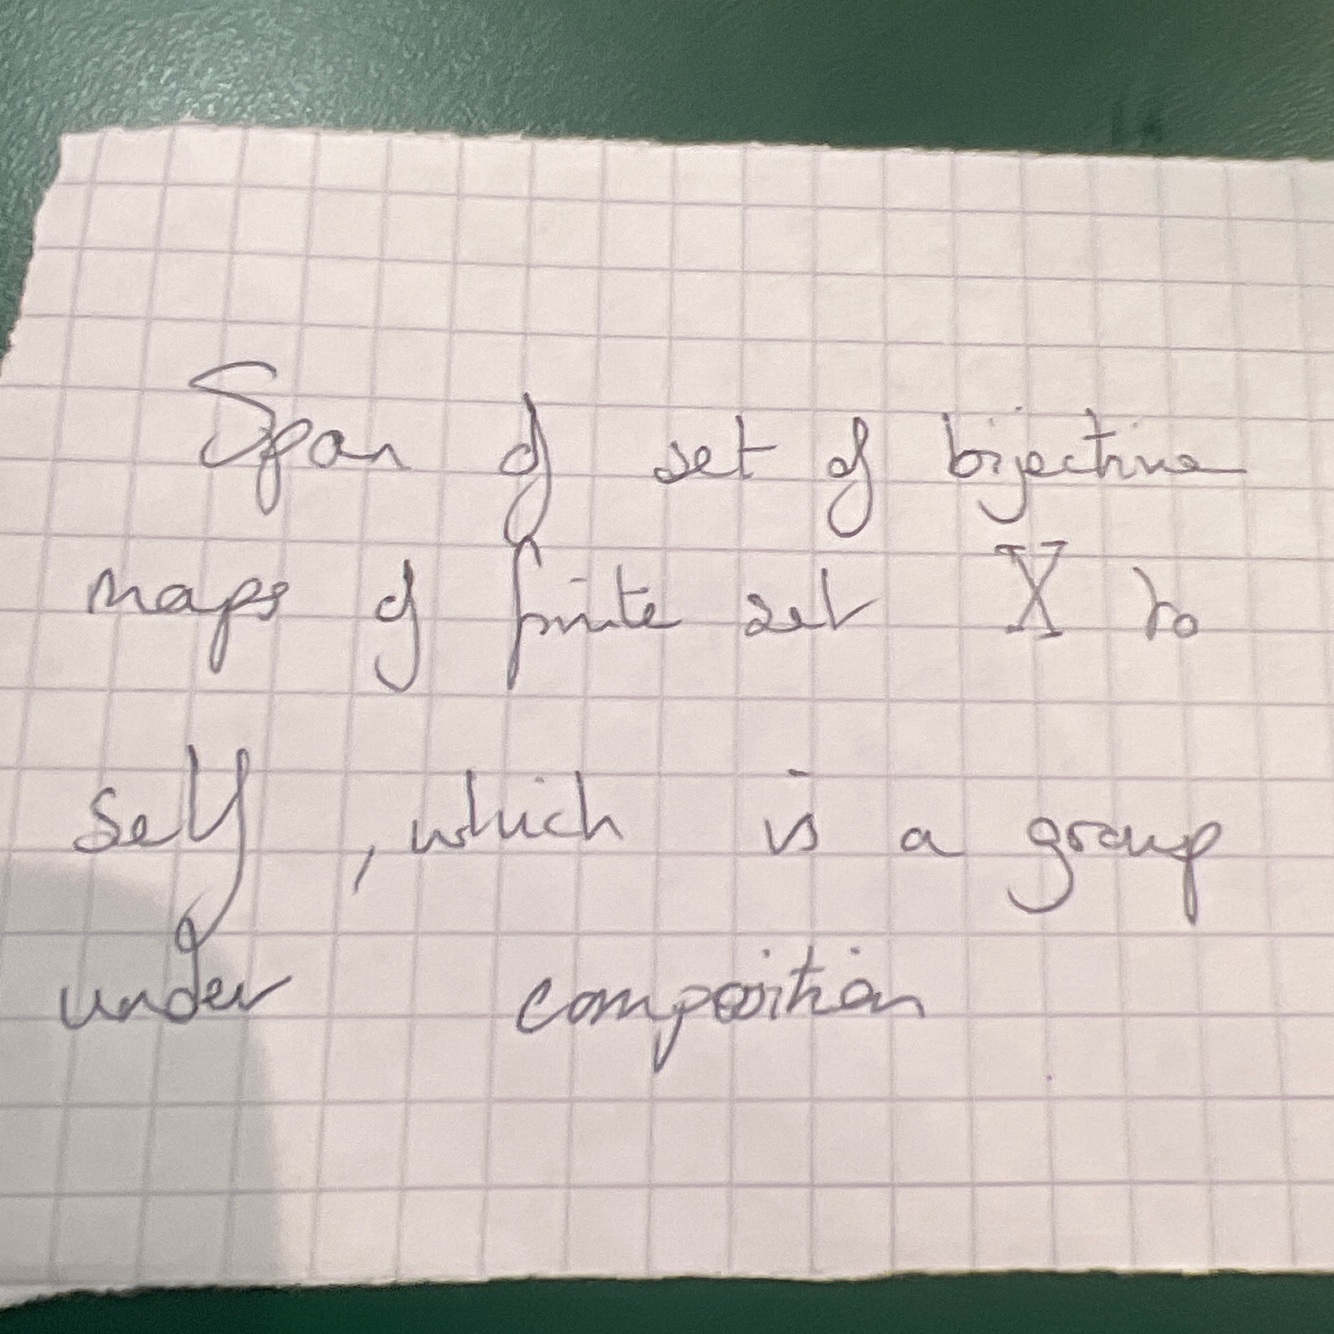 Span of set of bijective
maps of finite set X to
self, which is a group
under composition